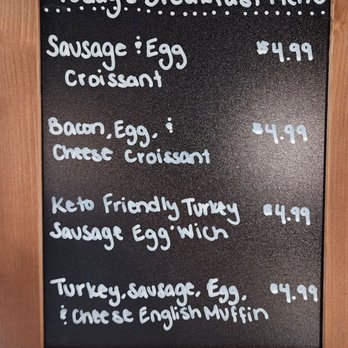 Today's Breakfast Menu
Sausage & Egg $4.99
Croissant
Bacon, Egg, & $4.99
Cheese Croissant
Keto Friendly Turkey $4.99
Sausage Egg'Wich
Turkey, Sausage, Egg, $4.99
& Cheese English Muffin